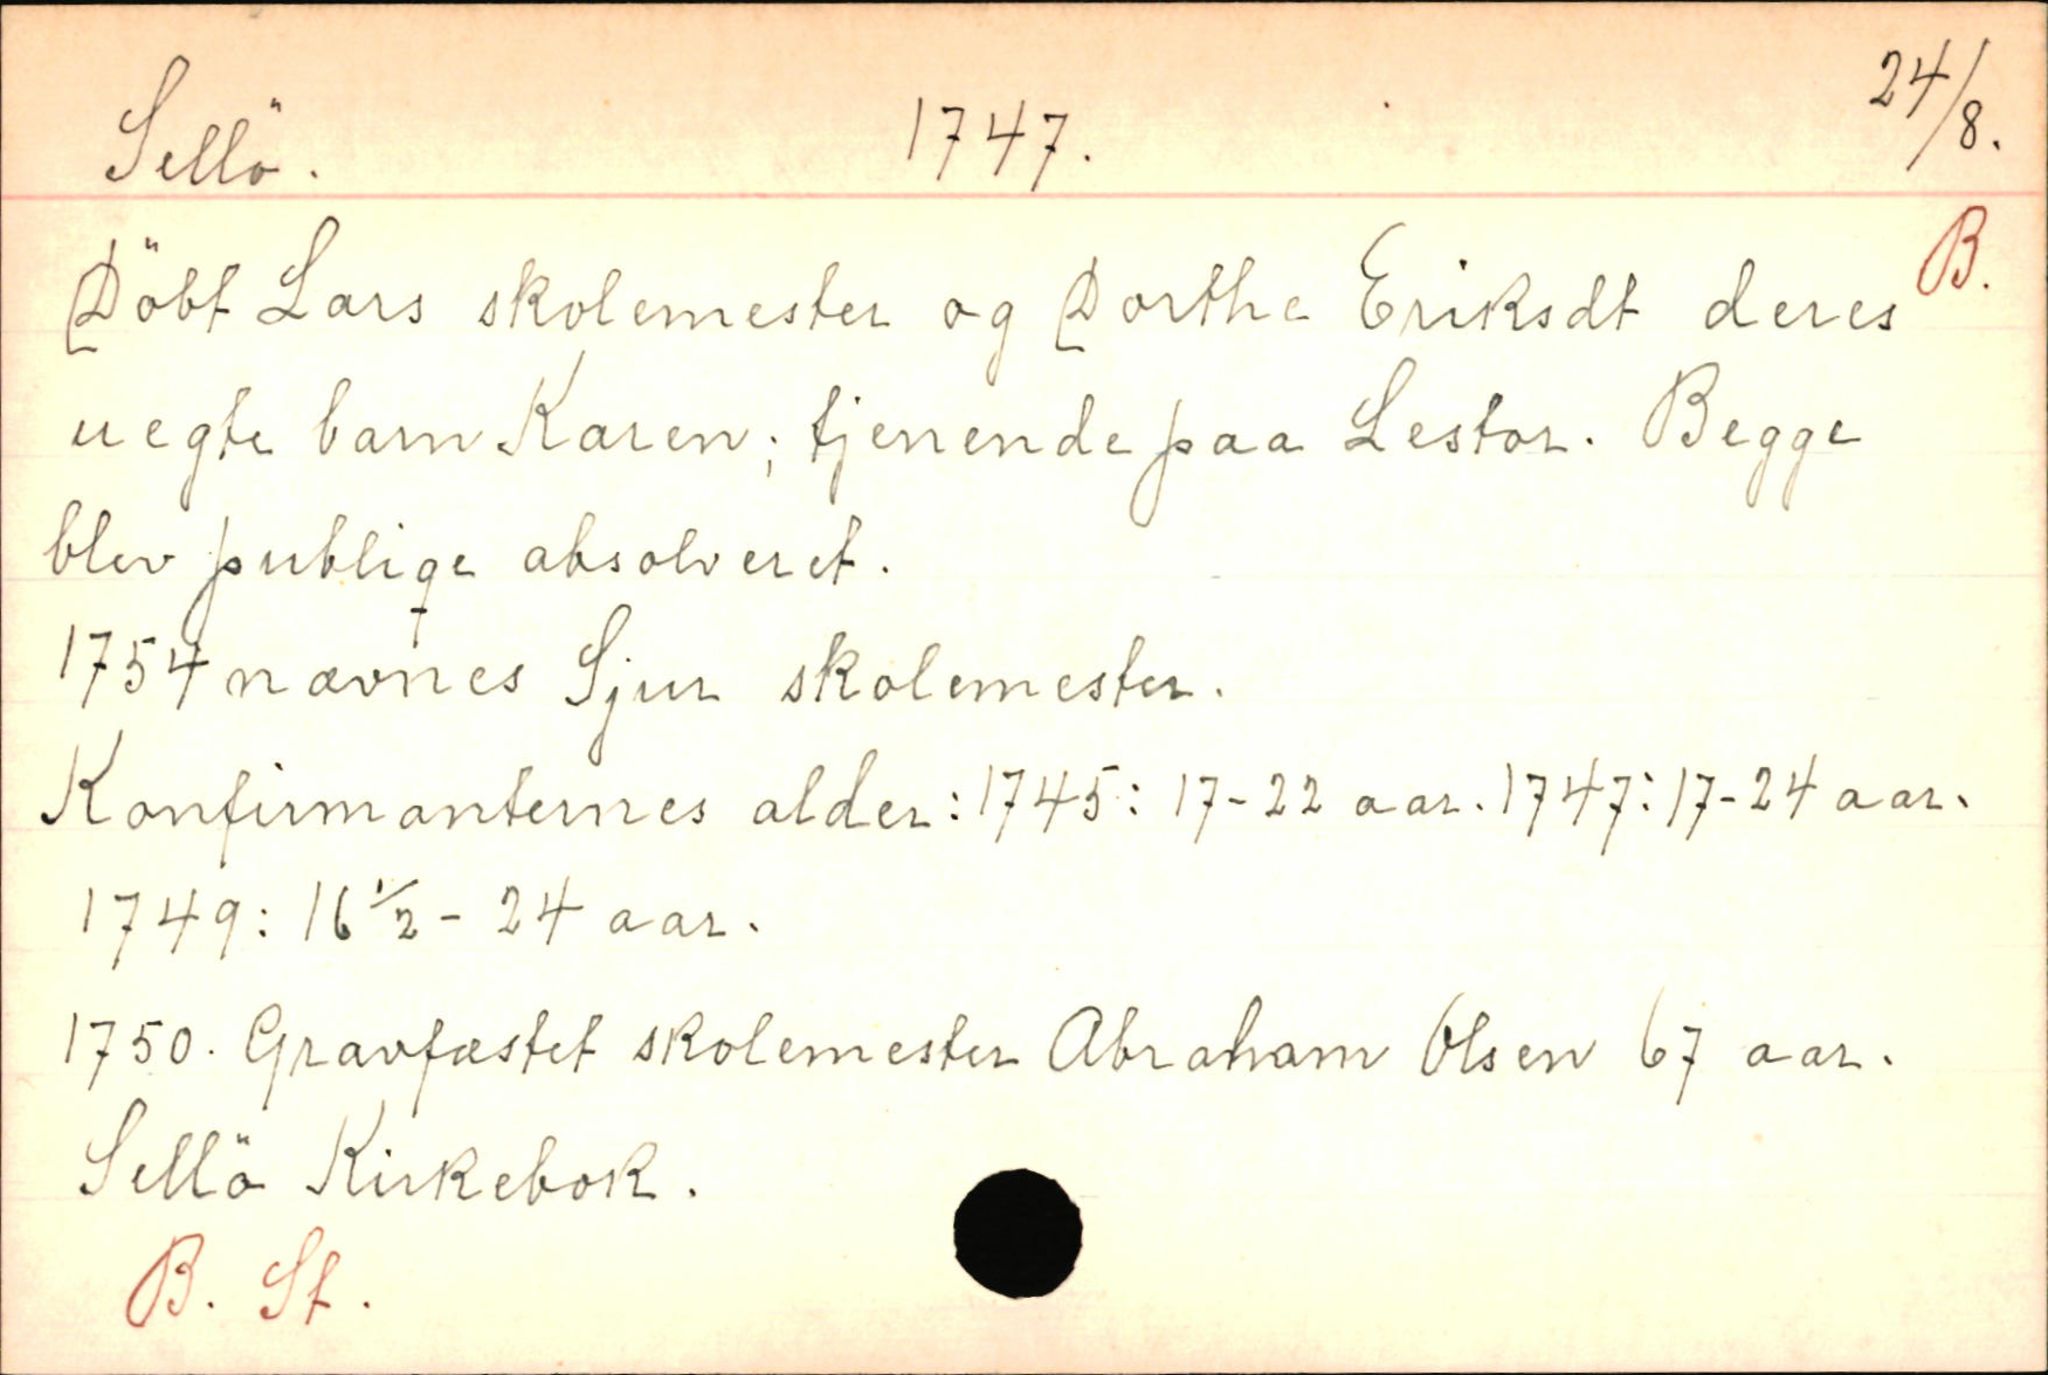 Sellö. 1747. 24/8.
B.
Döbt Lars skolemester og Dorthe Eriksdt deres
uegte barn Karen; tjenende paa Lestor. Begge
blev publiqe absolveret.
1754 nævnes Sjur skolemester.
Konfirmanternes alder: 1745: 17-22 aar. 1747: 17-24 aar.
1749: 16 1/2 - 24 aar.
1750. Gravfæstet skolemester Abraham Olsen 67 aar.
Sellö Kirkebok.
B. St.